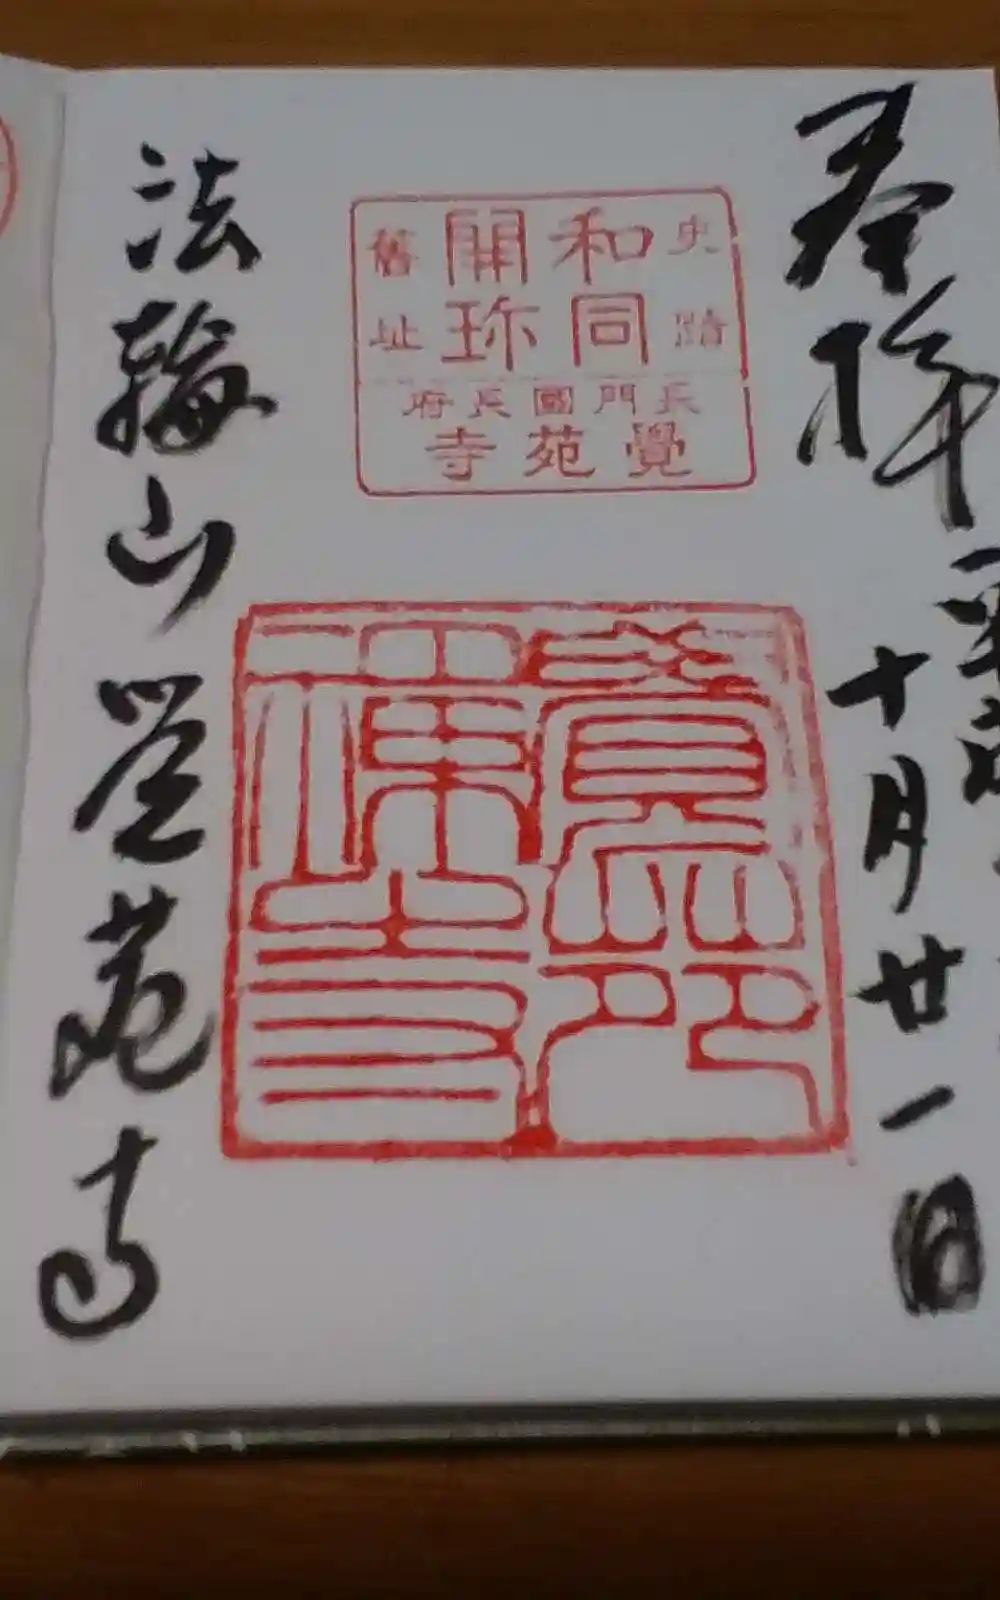 奉拝
十月廿一日
史蹟
和同
開珎
舊址
長門國長府
覺苑寺
法輪山覚苑寺